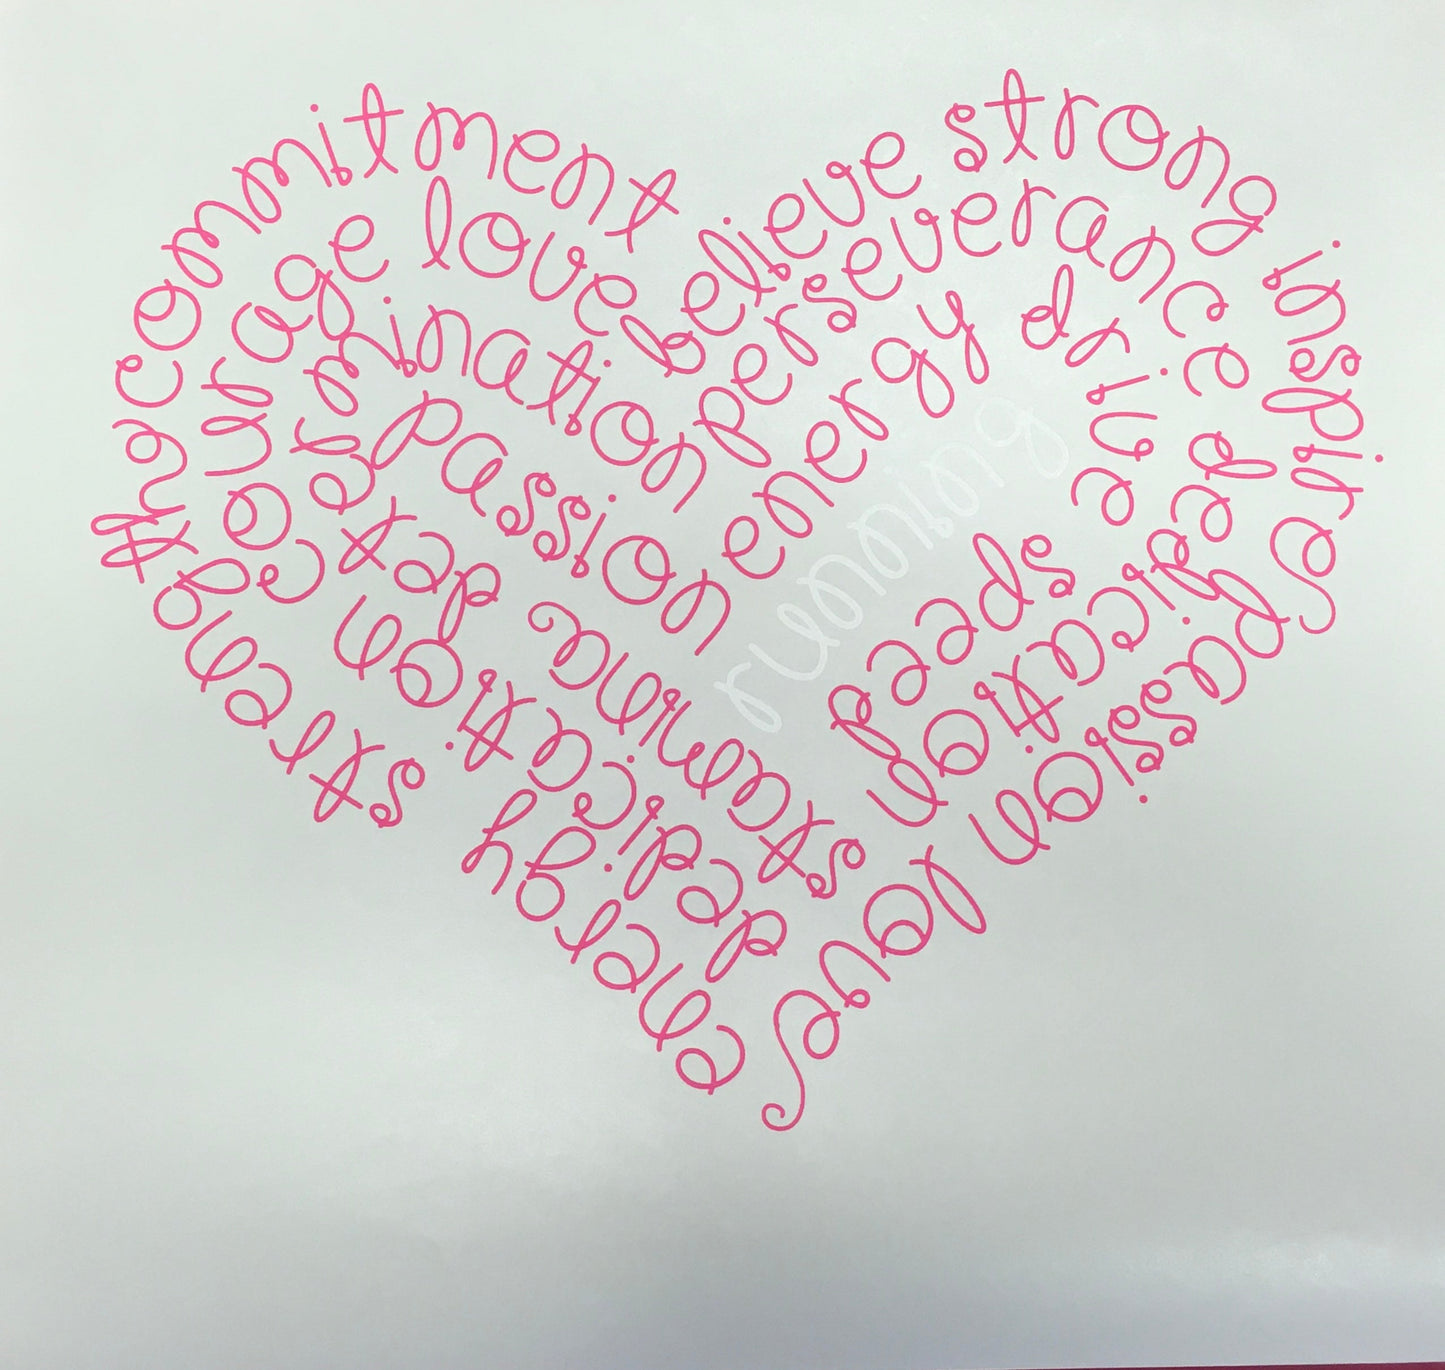 commitment
believe strong inspire
passion love
energy
strength
courage love
perseverance dedication
dedication
determination
energy drive speed
stamina
passion
running